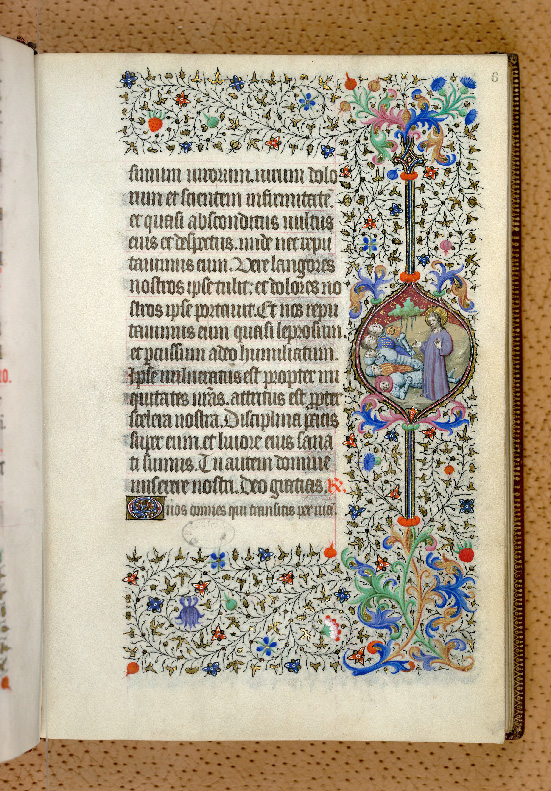 simum virorum. virum dolo
rum et scientem infirmitatē
et quasi absconditus vultus
eius et despectus. unde nec repu
tavimus eum. Vere langores
nostros ipse tulit: et dolores no
stros ipse portavit. Et nos repu
tavimus eum quasi leprosum
et percussum a deo humiliatum.
Ipse vulneratus est propter ini
quitates nr̄as. attritus est ꝓpter
scelera nostra. Disciplina pacis
super eum. et livore eius sana
ti sumus. Tu autem domine
miserere nostri. Deo gracias. R.
O vos omnes qui transitis per via
6